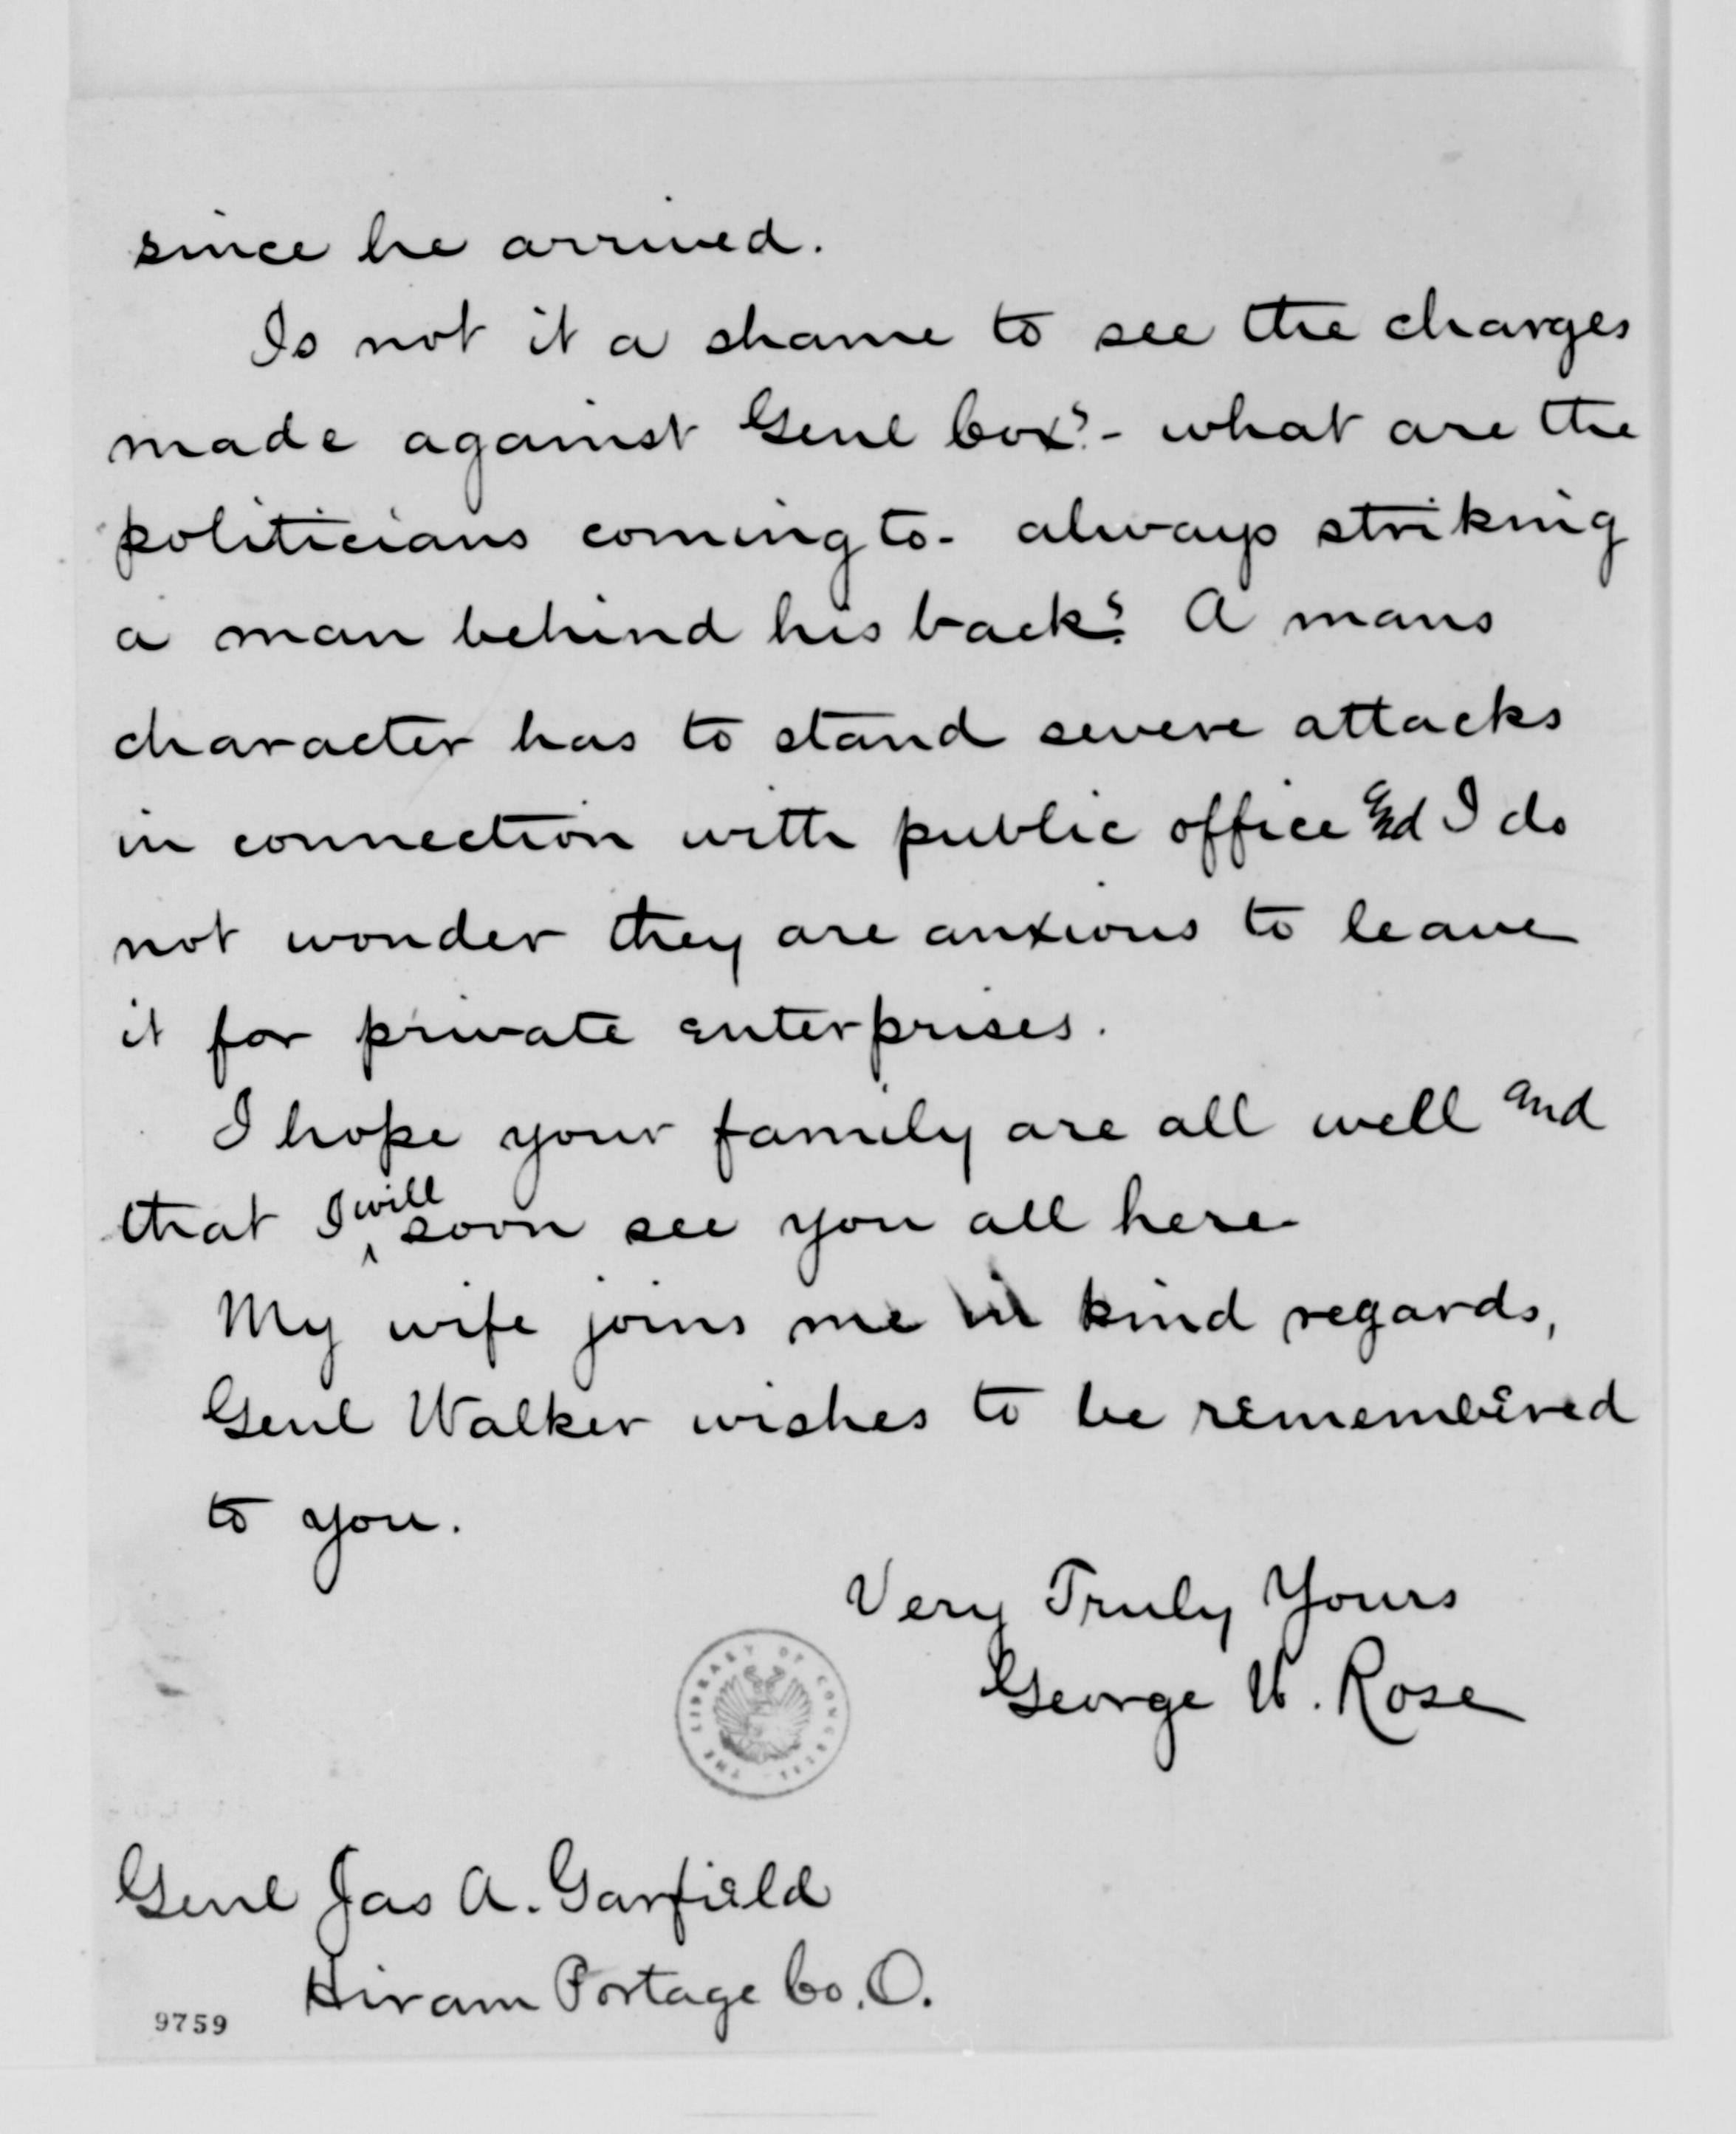 since he arrived.
Is not it a shame to see the charges
made against Genl Cox? - what are the
politicians coming to - always striking
a man behind his back? A mans
character has to stand severe attacks
in connection with public office and I do
not wonder they are anxious to leave
it for private enterprises.
I hope your family are all well and
that I will soon see you all here
My wife joins me in kind regards,
Genl Walker wishes to be remembered
to you.
Very Truly Yours
George W. Rose
THE LIBRARY OF CONGRESS
Genl Jas A. Garfield
Hiram Portage Co. O.
9759